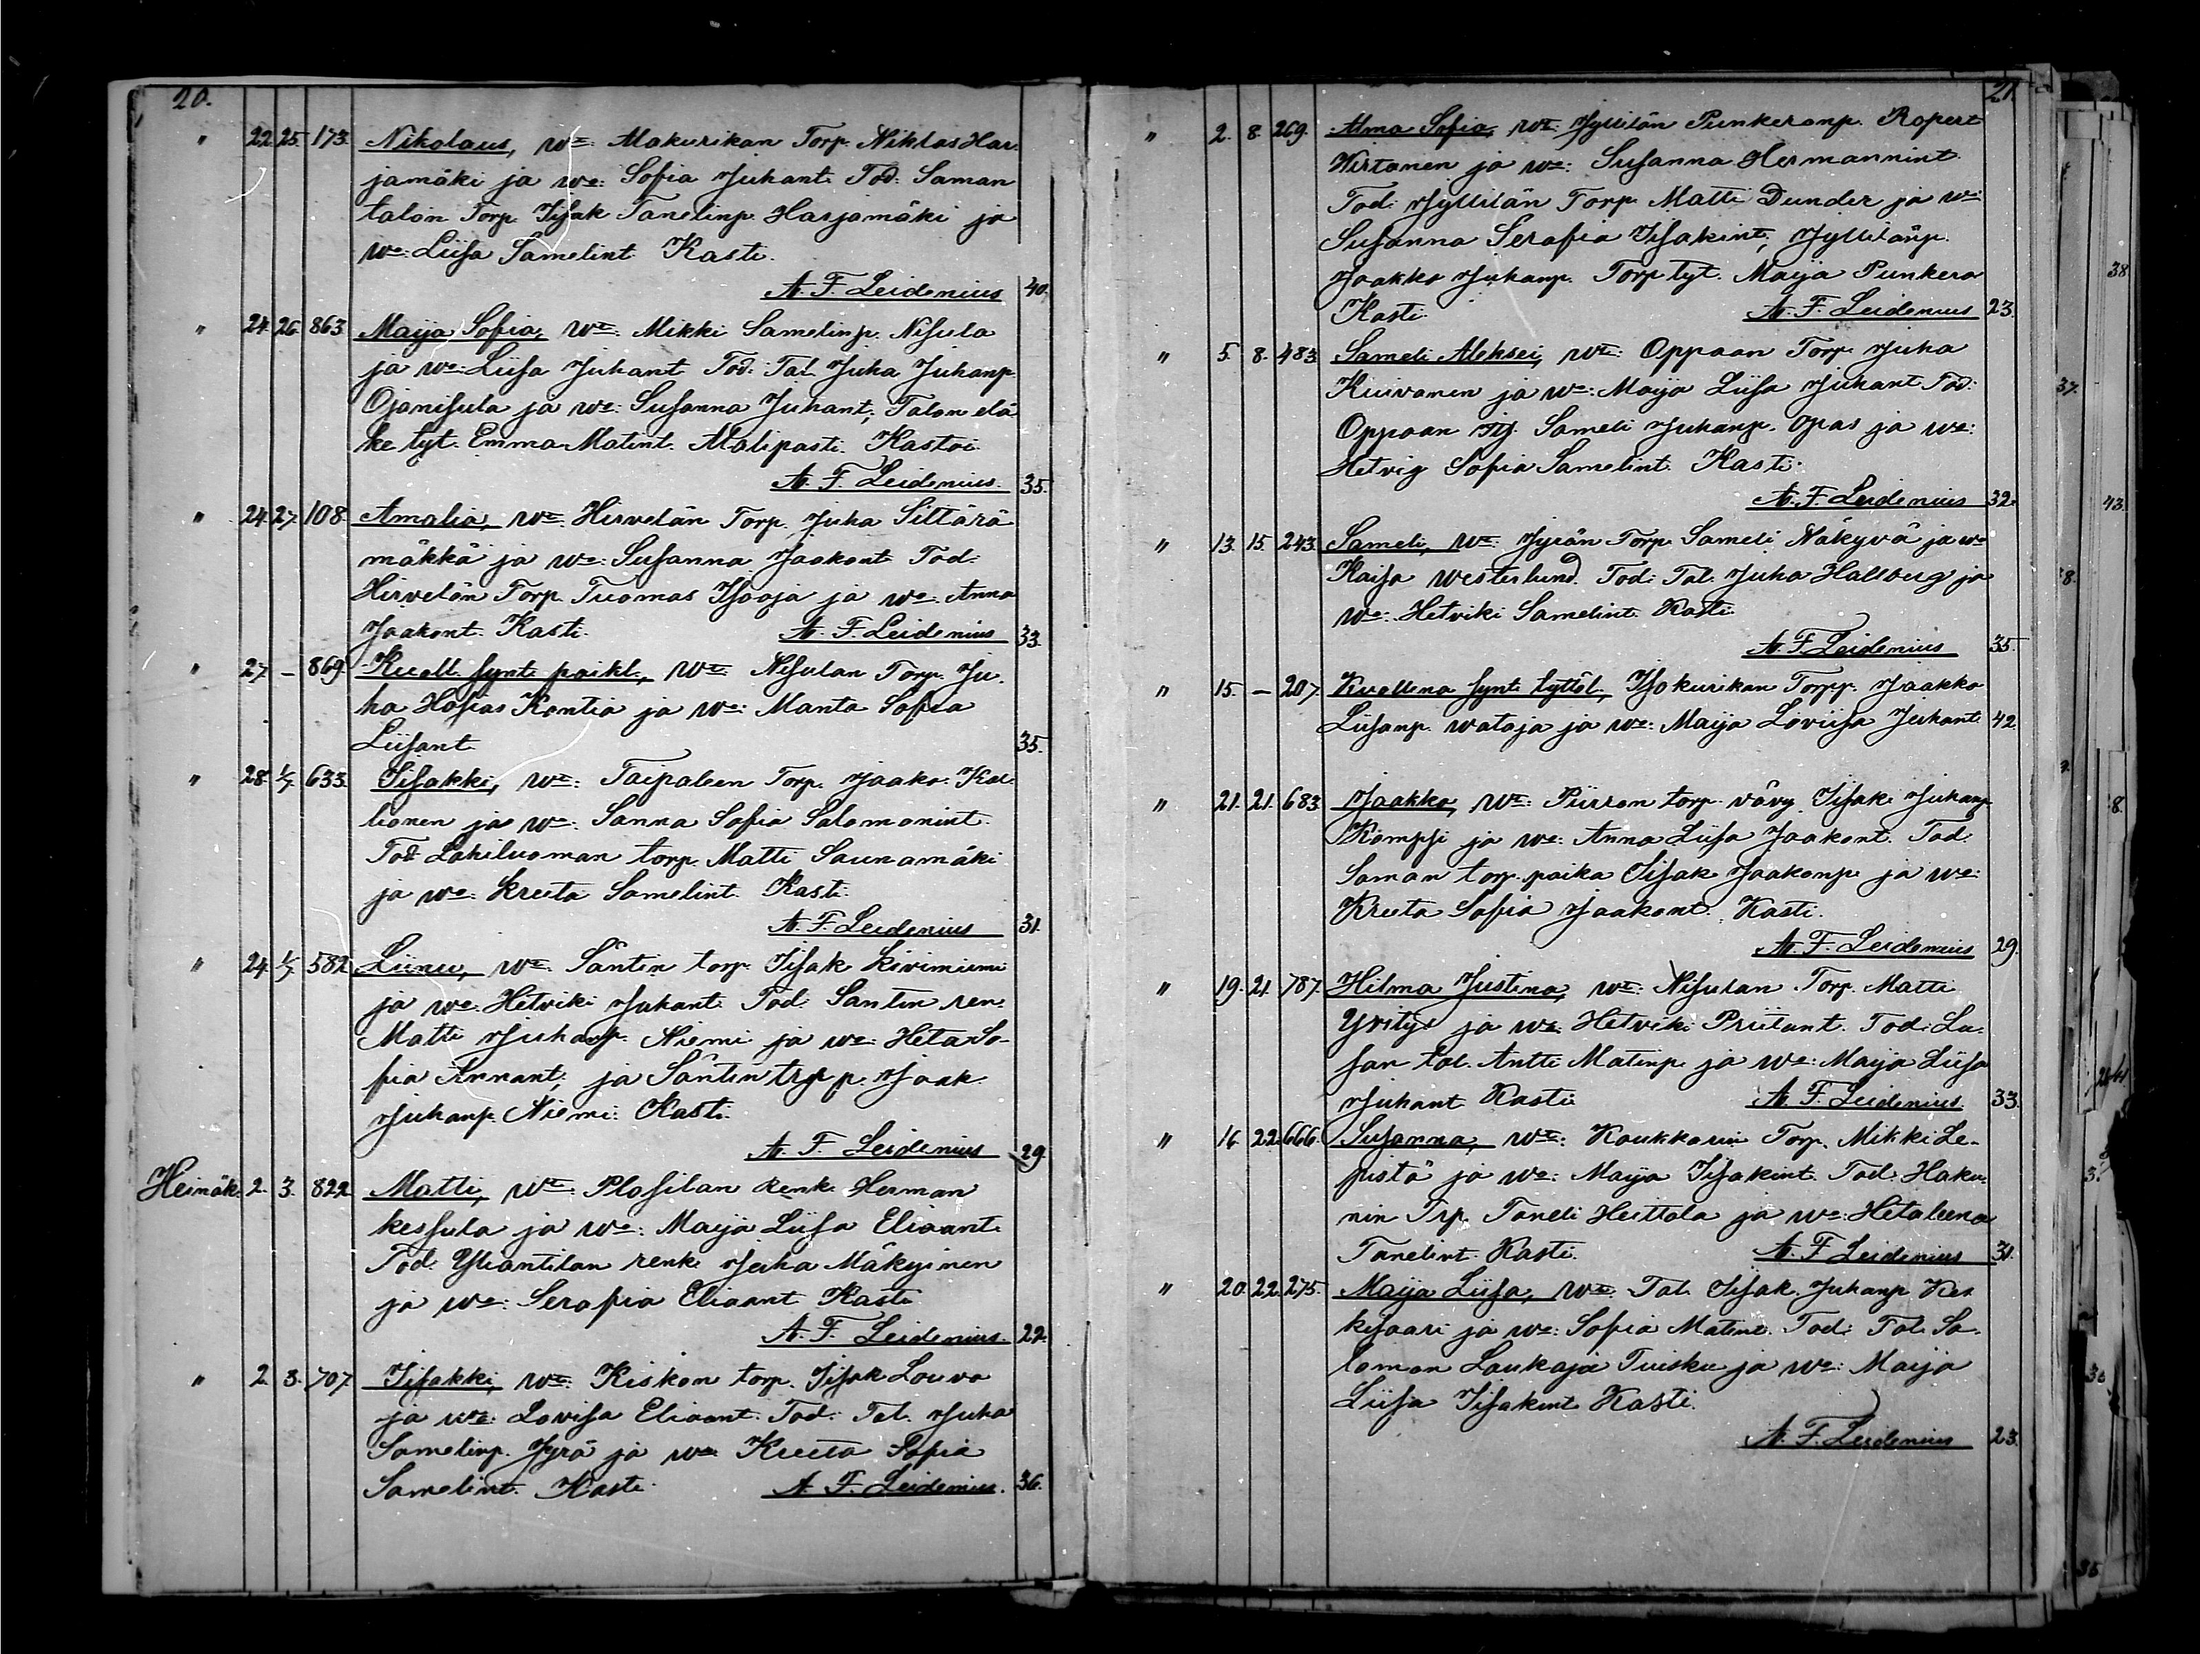 20.
" 22 25. 173. Nikolaus, Wn: Makurikan Torp. Niklas Har-
jamäki ja wa: Sofia Juhant. Tod: Saman
talon Torp. Iisak Tanelinp. Harjamäki ja
wa: Liisa Samelint. Kasti.
A. F. Leidenius 40.
" 24. 26. 863. Maija Sofia, Wn: Mikki Samelinp. Nisula
ja wa: Liisa Juhant. Tod: Tal. Juha Juhanp.
Ojanisula ja wa: Susanna Juhant; Talon elä
ke tyt. Emma Matint. Malipasti. Kastoi
A. F. Leidenius. 35.
" 24. 27. 108. Amalia, Wn: Hirvelän Torp. Juha Siltärä
mäkkä ja wa: Susanna Jaakont. Tod:
Hirvelän Torp. Tuomas Isooja ja wa: Anna
Jaakont. Kasti. A. F. Leidenius 33.
" 27. – 869. Kuoll. synt. poikl., Wn: Nisulan Torp. Ju-
ha Hosias Rontia ja wa: Manta Sofia
Liisant. 35.
" 28. 1/7. 633. Iisakki, Wn: Taipaleen Torp. Jaako Kal-
lionen ja wa: Sanna Sofia Salomonint.
Tod Lahiluoman torp. Matti Saunamäki
ja wa: Kreeta Samelint. Kasti.
A. F. Leidenius 31.
" 24. 1/7. 582. Liinu, Wn: Säntin torp. Iisak Kiviniemi
ja wa: Hetviki Juhant. Tod: Säntin ren.
Matti Juhanp. Niemi ja wa: Heta So-
fia Annant; ja Säntin trp p. Jaak.
Juhanp. Niemi. Kasti.
A. F. Leidenius 29.
Heinäk. 2. 3. 822. Matti, Wn: Plosilan Renk. Herman
Kessula ja wa: Maija Liisa Eliaant.
Tod. Yliantilan renk. Juha Mäkyinen
ja wa: Serafia Eliaant. Kasti
A. F. Leidenius. 22.
" 2. 3. 707. Iisakki, Wn: Kiskon torp. Iisak Louva
ja wa: Lovisa Eliaant. Tod: Tal. Juha
Samelinp. Jyrä ja wa: Kreeta Sofia
Samelint. Kasti. A. F. Leidenius. 36.
21.
" 2. 8. 269. Alma Sofia, Wn: Jyllilän Punkeranp. Ropert
Wirtanen ja wa: Susanna Hermannint.
Tod: Jyllilän Torp. Matti Dunder ja wa:
Susanna Serafia Iisakint; Jyllilänp.
Jaakko Juhanp. Torp tyt. Maija Punkera
Kasti. A. F. Leidenius 23.
" 5. 8. 483. Sameli Aleksei, Wn: Oppaan Torp. Juha
Kiuvanen ja wa: Maija Liisa Juhant. Tod:
Oppaan Sameli Juhanp. Opas ja wa:
Hetvig Sofia Samelint. Kasti.
A. F. Leidenius 32.
" 13. 15. 243. Sameli, Wn: Jyrän Torp. Sameli Näkyvä ja wa
Kaisa Westerlund. Tod: Tal. Juha Hallberg ja
wa: Hetviki Samelint. Kasti.
A. F. Leidenius 35.
" 15. – 207. Kuollena synt. tyttöl., Isokurikan Torpp. Jaakko
Liisanp. Wataja ja wa: Maija Loviisa Juhant. 42.
" 21. 21. 683. Jaakko, Wn: Piirron torp. vävy Iisak Juhanp.
Kömpsi ja wa: Anna Liisa Jaakont. Tod.
Saman torp. poika Iisak Jaakonp. ja wa:
Kreeta Sofia Jaakont. Kasti.
A. F. Leidenius 29.
" 19. 21. 787. Hilma Justina, Wn: Nisulan Torp. Matti
Yritys ja wa: Hetviki Priitant. Tod: La-
san tal. Antti Matinp. ja wa: Maija Liisa
Juhant. Kasti A. F. Leidenius. 33.
" 16. 22. 666. Susanna, Wn: Koukkarin Torp. Mikki Le-
pistö ja wa: Maija Iisakint. Tod: Haku-
nin Trp. Taneli Heittola ja wa: Hetaleena
Tanelint. Kasti. A. F. Leidenius 31.
" 20. 22. 275. Maija Liisa, Wn: Tal. Iisak Juhanp. Kes
kisaari ja wa: Sofia Matint. Tod: Tal. Sa-
lomon Laukaja Tuisku ja wa: Maija
Liisa Iisakint. Kasti.
A. F. Leidenius 23.
38.
37.
43.
8.
8.
36